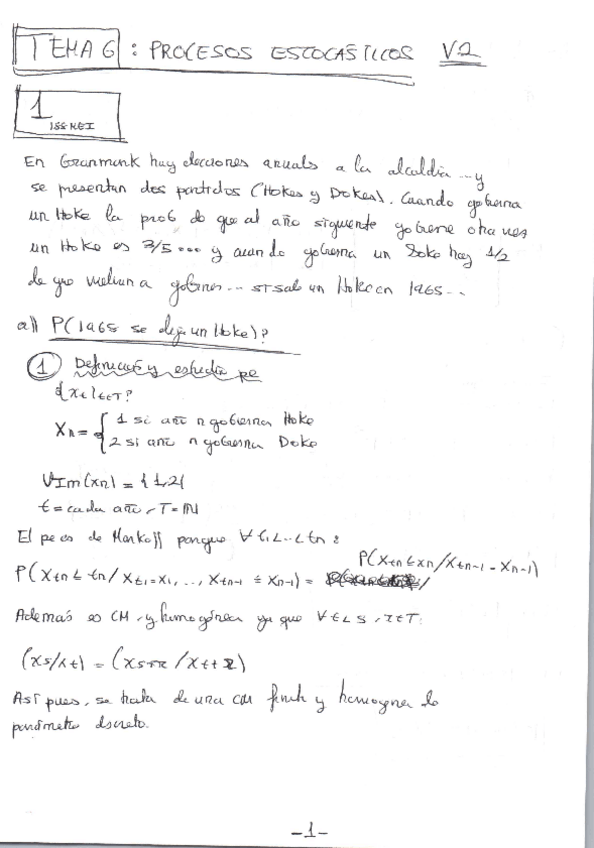 TEMA 6 : PROCESOS ESTOCÁSTICOS V.2
1
ISS-KEI
En Granmunk hay elecciones anuals a la alcaldía ... y
se presentan dos partidos (Hokes y Dokes). Cuando gobierna
un Hoke la prob de que al año siguiente gobierne otra vez
un Hoke es 3/5 ... y cuando gobierna un Doke hay 1/2
de que vuelvan a gobernar ... si sale un Hoke en 1965 ...
a)) P(1965 se elija un Hoke)?
1 Definición y estudio pe
{xt}t∈T?
Xn = { 1 si año n gobierna Hoke
2 si año n gobierna Doke
Im(xn) = {1,2}
t = cada año, T = ℕ
El pe es de Markoff porque ∀ t1<..<tn :
P(Xtn ≤ xn / Xtn-1 = Xn-1)
P(Xtn ≤ tn / Xt1=x1, ..., Xtn-1 = Xn-1) =
Además es CM y homogénea ya que ∀ t<s, r∈T:
(xs/xt) = (xs+r / xt+r)
Así pues, se trata de una CM finita y homogénea de
parámetro discreto.
-1-